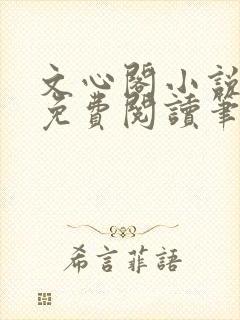 文心閣小說
免費閱讀筆
希言菲語